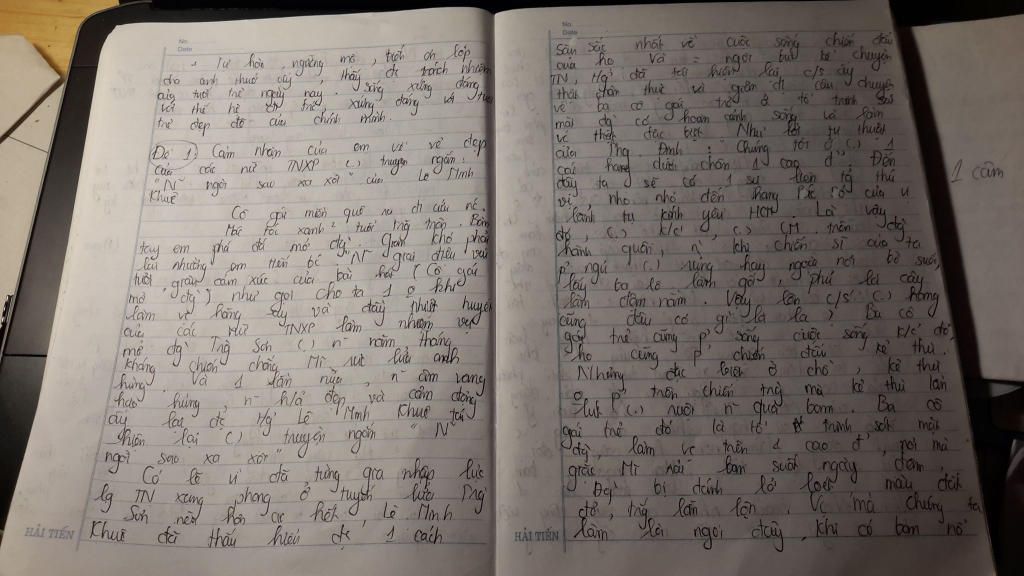 No.
Date
- Tự hào, ngưỡng mộ, biết ơn lớp
cha anh thuở ấy, thấy đc trách nhiệm
của tuổi trẻ ngày nay. Sống xứng đáng
với thế hệ đi trc, xứng đáng với tuổi
trẻ đẹp đẽ của chính mình.
Đề 1) Cảm nhận của em về vẻ đẹp
của các nữ TNXP (.) truyện ngắn:
"N~ ngôi sao xa xôi" của Lê Minh
Khuê
Cô gái miền quê ra đi cứu nc
Mái tóc xanh tuổi trăng tròn. Bàn
tay em phá đá mở đg. Gian khó phải
lùi nhường em tiến bc. N~ giai điệu vui
tươi giàu cảm xúc của bài hát (Cô gái
mở đg) như gợi cho ta 1 k khí
làm về hăng say và đầy nhiệt huyết
của các nữ TNXP làm nhiệm vụ
mở đg Trg Sơn (.) n~ năm tháng
kháng chiến chống Mĩ cứu nc anh
hùng. Và 1 lần nữa, n~ âm vang
hào hùng, n~ h/ả đẹp và cảm động
ấy lại đc Lê Minh Khuê tái
hiện lại (.) truyện ngắn "N~
ngôi sao xa xôi"
Có lẽ vì đã từng gia nhập lực
lg TN xung phong ở tuyến lửa Trg
Sơn nên hơn ai hết, Lê Minh
Khuê đã thấu hiểu đc 1 cách
HẢI TIẾN
No.
Date
sâu sắc nhất về cuộc sống chiến đấu
của họ. Và ngòi bút kể chuyện
đã tái hiện lại c/s ấy
thật chân thực và giản dị câu chuyện
về ba cô gái trẻ ở tổ trinh sát
mặt đg có hoàn cảnh sống và làm
về thật đặc biệt. Như lời tự thuật
của Phg Định: "Chúng tôi ở (.) 1
cái hang dưới chân 1 cao đ'". Đến
đây ta sẽ có 1 sự liên tg thú
vị, nho nhỏ đến hang Pác Bó của vị
lãnh tụ kính yêu HCM. Là vậy
đó, (.) k/c, (.) CM trên đg
hành quân, n~ khi chiến sĩ của ta
p' ngủ (.) rừng hay ngoài nơi bờ suối,
lấy ba lô làm gối, phủ lá cây
làm đệm nằm. Vậy lên c/s (.) hang
cũng đâu có gì là lạ? Ba cô
gái trẻ cũng p' sống cuộc sống k/c đó,
họ cũng p' chiến đấu kẻ thù.
Nhưng đặc biệt ở chỗ, kẻ thù
k p' trên chiến trg mà kẻ thù lần
lượt (.) ruột n~ quả bom. Ba cô
gái trẻ đó là tổ trinh sát mặt
đg, làm về trên 1 cao đ', nơi mà
giặc Mĩ ném bom suốt ngày đêm,
Đg bị đánh lở loét màu đất
đỏ, trg lẫn lộn. Vc mà chúng ta
làm là ngồi đấy, khi có bom nổ
HẢI TIẾN
1 cảm